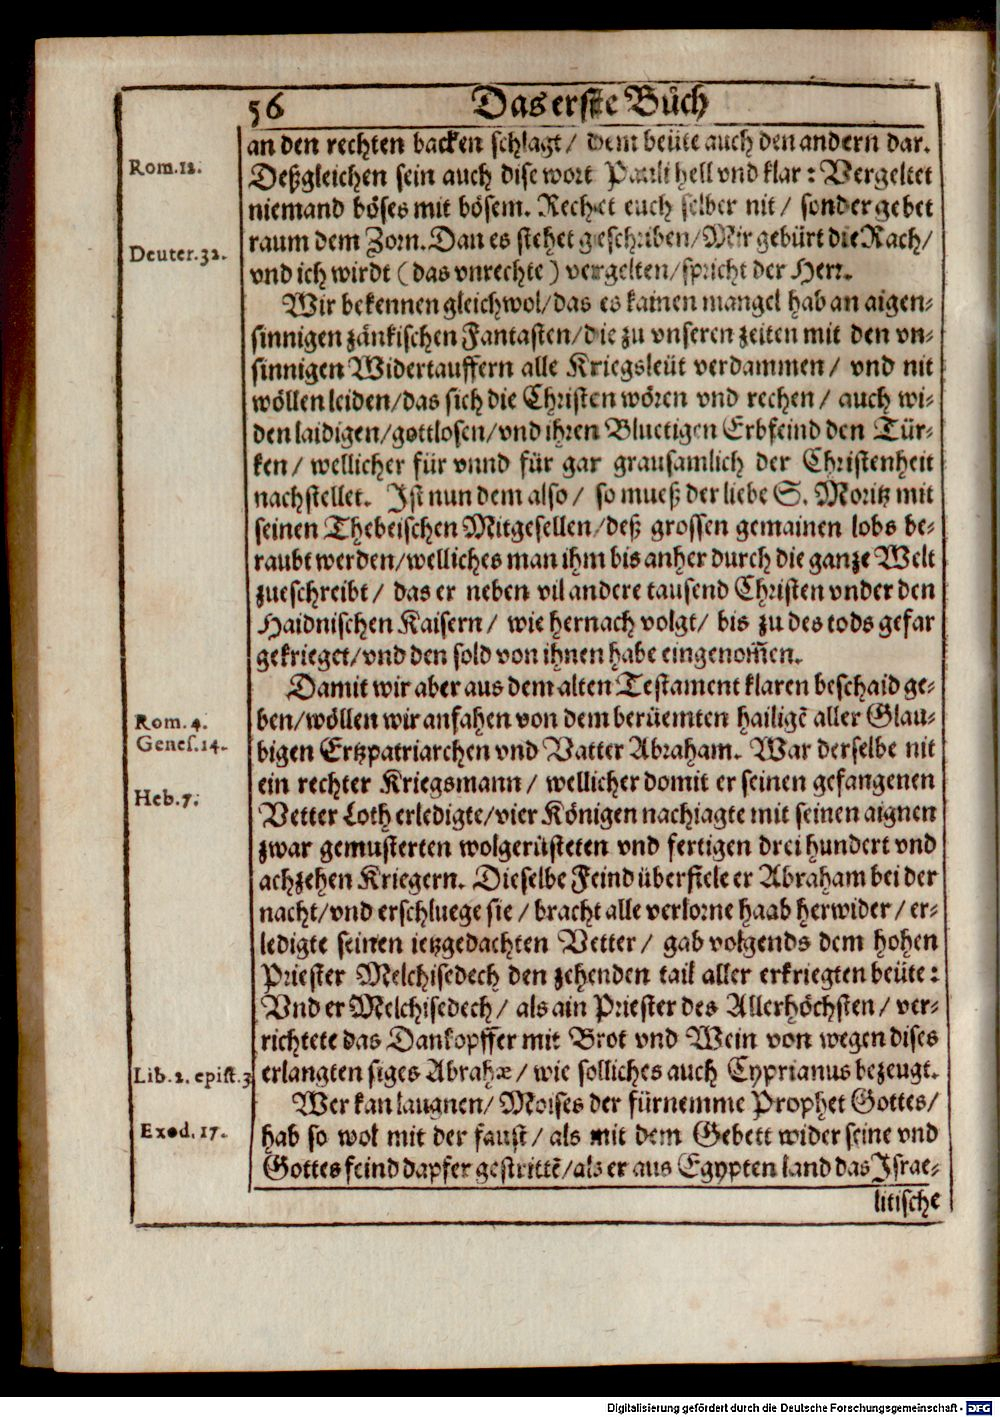 56
Das erste Buͤch
an den rechten backen schlagt / dem beüte auch den andern dar.
Rom.12.
Deßgleichen sein auch dise wort Pauli hell vnd klar : Vergeltet
niemand böses mit bösem. Rechet euch selber nit / sonder gebet
Deuter.32.
raum dem Zorn. Dan es stehet geschriben / Mir gebürt die Rach /
vnd ich wirdt ( das vnrechte ) vergelten / spricht der Herr.
Wir bekennen gleichwol / das es kainen mangel hab an aigen-
sinnigen zänkischen Fantasten / die zu vnseren zeiten mit den vn-
sinnigen Widertauffern alle Kriegsleüt verdammen / vnd nit
wöllen leiden / das sich die Christen wören vnd rechen / auch wi-
den laidigen / gottlosen / vnd ihren Bluetigen Erbfeind den Tür-
ken / wellicher für vnnd für gar grausamlich der Christenheit
nachstellet. Ist nun dem also / so mueß der liebe S. Moritz mit
seinen Thebeischen Mitgesellen / deß grossen gemainen lobs be-
raubt werden / welliches man ihm bis anher durch die ganze Welt
zueschreibt / das er neben vil andere tausend Christen vnder den
Haidnischen Kaisern / wie hernach volgt / bis zu des tods gefar
gekrieget / vnd den sold von ihnen habe eingenom̃en.
Damit wir aber aus dem alten Testament klaren beschaid ge-
Rom.4.
ben / wöllen wir anfahen von dem berüemten hailigē aller Glau-
Genes.14.
bigen Ertzpatriarchen vnd Vatter Abraham. War derselbe nit
ein rechter Kriegsmann / wellicher domit er seinen gefangenen
Heb.7.
Vetter Loth erledigte / vier Königen nachiagte mit seinen aignen
zwar gemusterten wolgerüsteten vnd fertigen drei hundert vnd
achzehen Kriegern. Dieselbe Feind überfiele er Abraham bei der
nacht / vnd erschluege sie / bracht alle verlorne haab herwider / er-
ledigte seinen ietzgedachten Vetter / gab volgends dem hohen
Priester Melchisedech den zehenden tail aller erkriegten beüte :
Vnd er Melchisedech / als ain Priester des Allerhöchsten / ver-
richtete das Dankopffer mit Brot vnd Wein von wegen dises
Lib.2. epist.3
erlangten siges Abrahæ / wie solliches auch Cyprianus bezeugt.
Wer kan laugnen / Moises der fürnemme Prophet Gottes /
Exod.17.
hab so wol mit der faust / als mit dem Gebett wider seine vnd
Gottes feind dapfer gestrittē / als er aus Egypten land das Israe-
litische
Digitalisierung gefördert durch die Deutsche Forschungsgemeinschaft - DFG